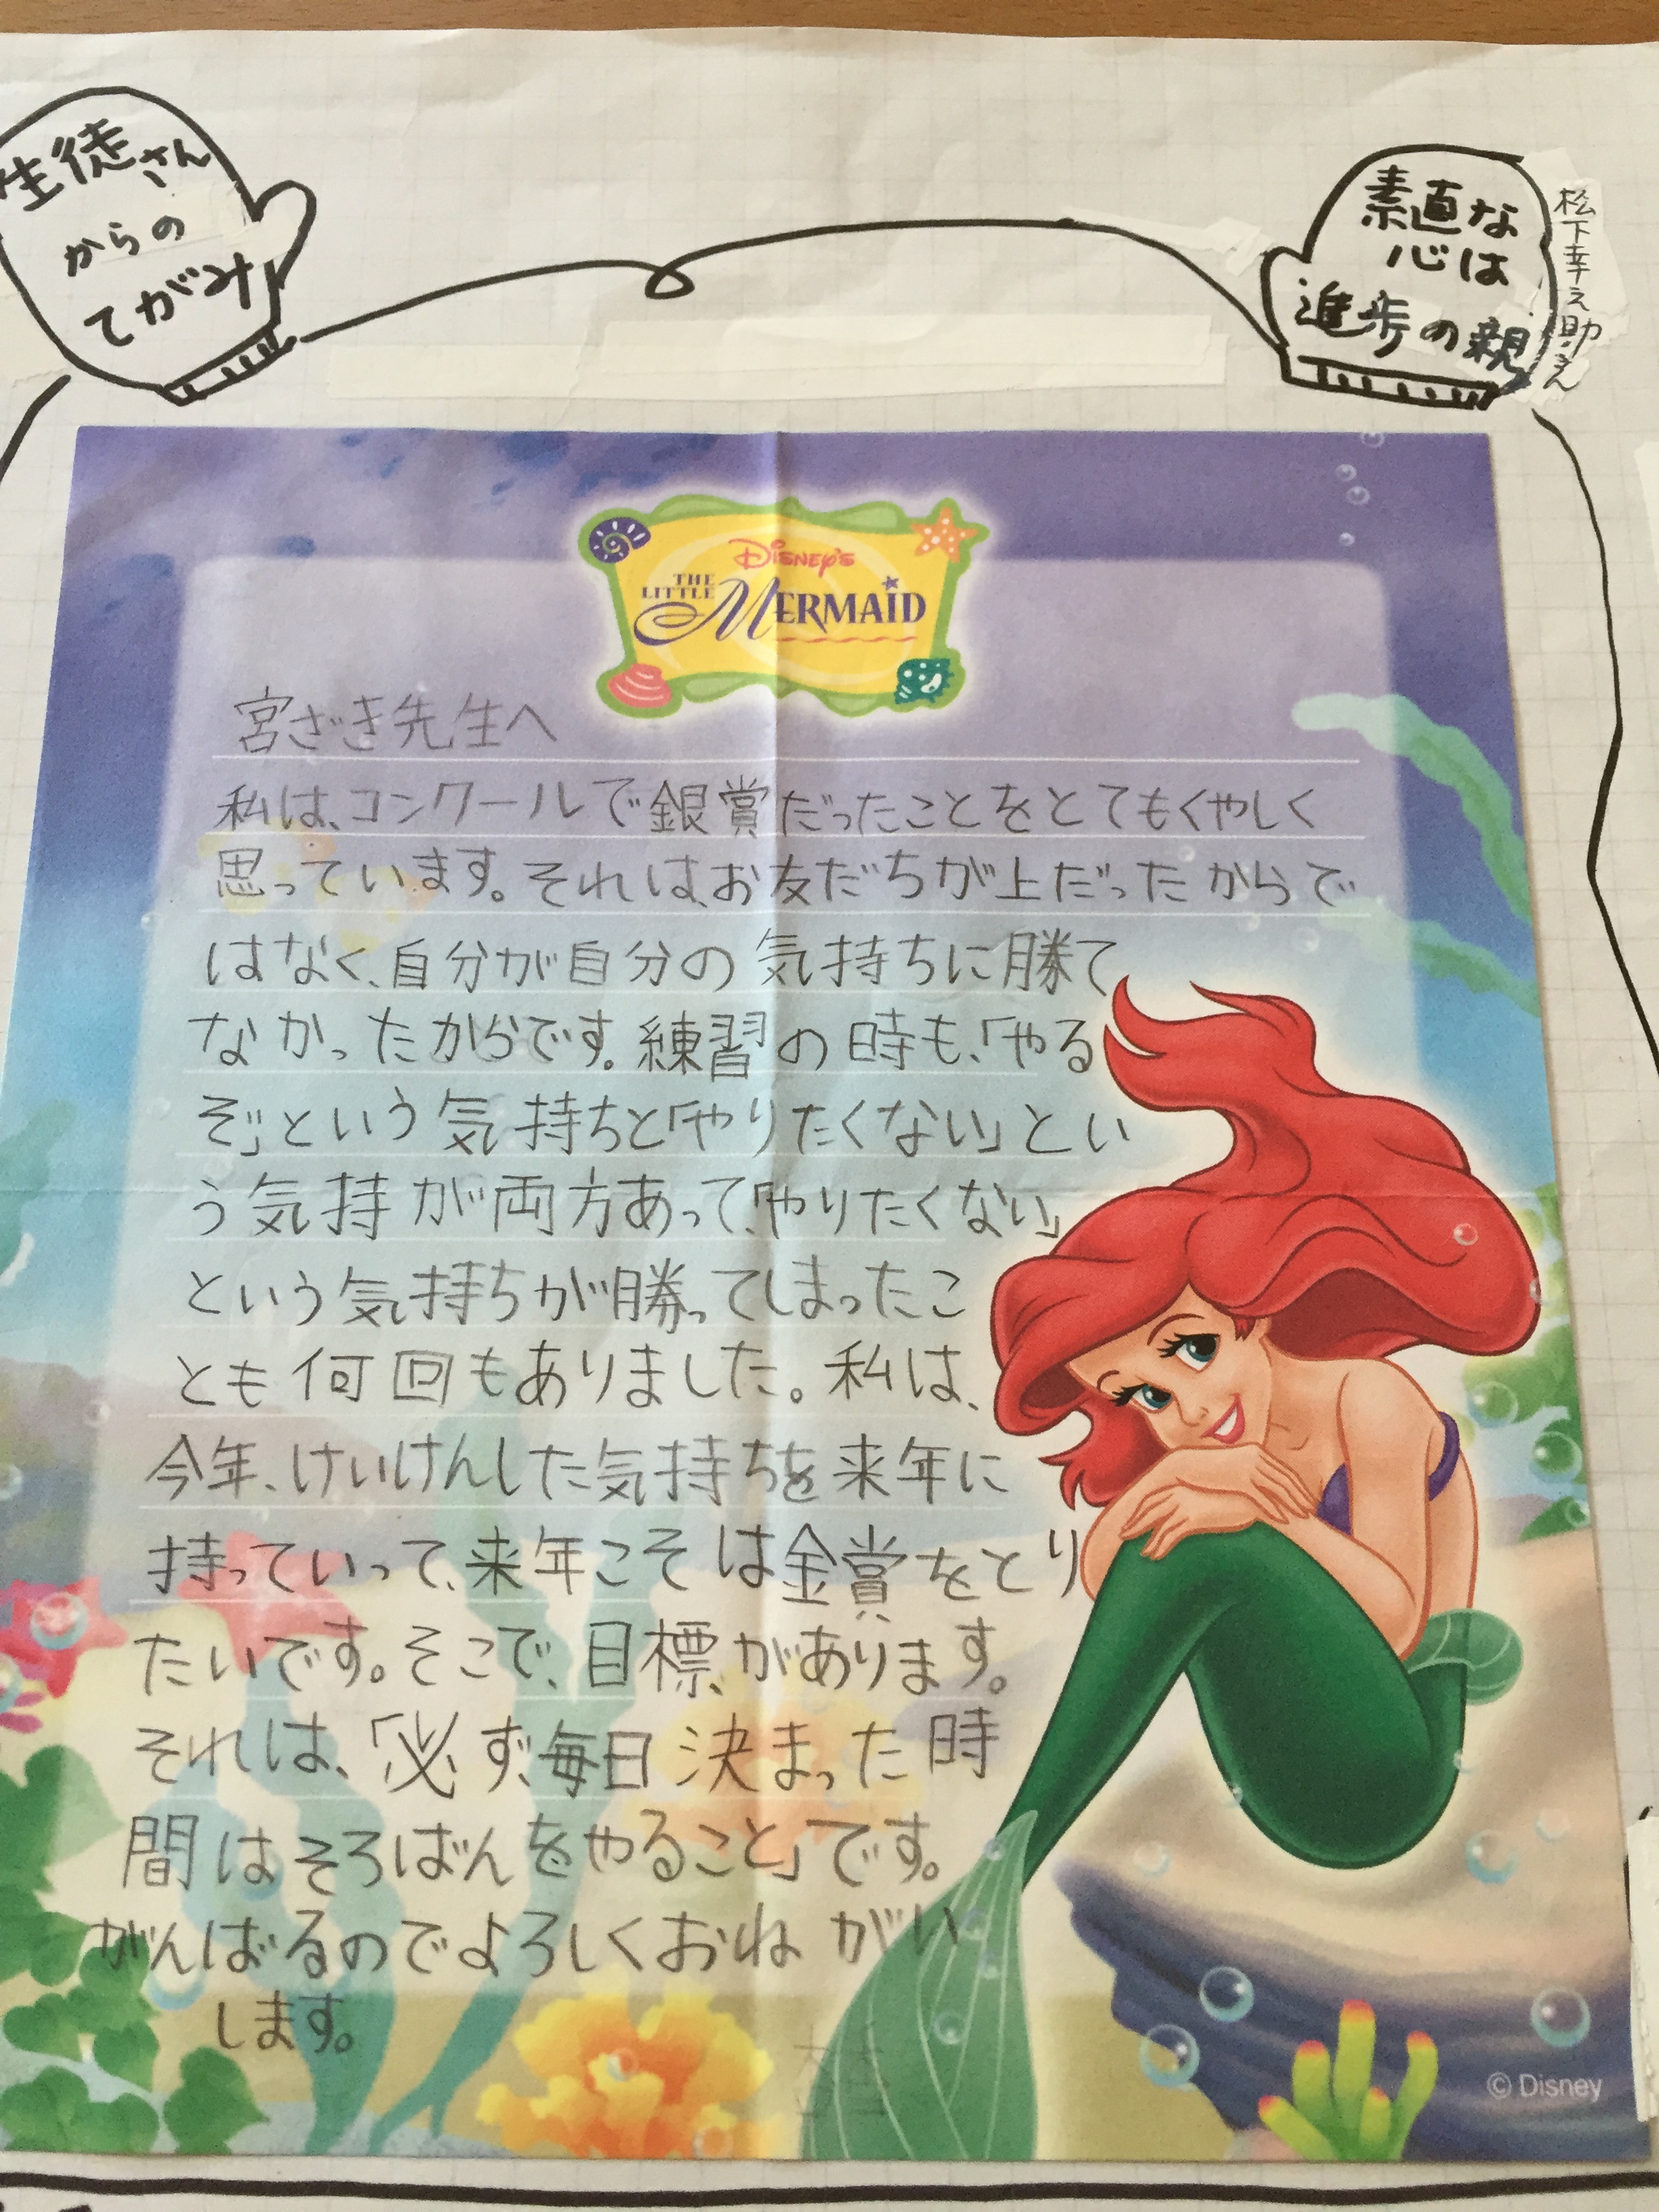 生徒さん
からの
てがみ
素直な
心は
進歩の親
松下幸之助さん
DISNEY'S
THE
LITTLE
MERMAID
宮ざき先生へ
私は、コンクールで銀賞だったことをとてもくやしく
思っています。それは、お友だちが上だったからで
はなく、自分が自分の気持ちに勝て
なかったからです。練習の時も、「やる
ぞ」という気持ちと「やりたくない」とい
う気持が両方あって、「やりたくない」
という気持ちが勝ってしまったこ
とも何回もありました。私は、
今年、けいけんした気持ちを来年に
持っていって、来年こそは金賞をとり
たいです。そこで、目標、があります。
それは、「必ず、毎日決まった時
間はそろばんをやること」です。
がんばるのでよろしくおねがい
します。
© Disney